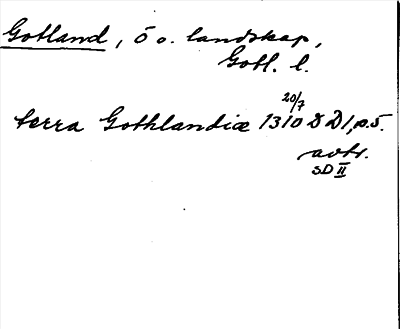 Gotland, ö o. landskap,
Gotl. l.
20/7
terra Gothlandiæ 1310 D D 1, p. 5.
avtr.
SD II